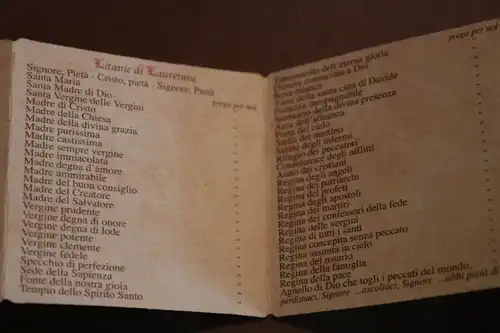 Litanie di Lauretane
Signore, Pietà - Cristo, pietà - Signore, Pietà
Santa Maria prega per noi
Santa Madre di Dio
Santa Vergine delle Vergini
Madre di Cristo
Madre della Chiesa
Madre della divina grazia
Madre purissima
Madre castissima
Madre sempre vergine
Madre immacolata
Madre degna d'amore
Madre ammirabile
Madre del buon consiglio
Madre del Creatore
Madre del Salvatore
Vergine prudente
Vergine degna di onore
Vergine degna di lode
Vergine potente
Vergine clemente
Vergine fedele
Specchio di perfezione
Sede della Sapienza
Fonte della nostra gioia
Tempio dello Spirito Santo
prega per noi
Tabernacolo dell'eterna gloria
Dimora consacrata a Dio
Rosa mistica
Torre della santa città di Davide
Fortezza inespugnabile
Santuario della divina presenza
Arca dell'alleanza
Porta del cielo
Stella del mattino
Salute degli infermi
Rifugio dei peccatori
Consolatrice degli afflitti
Aiuto dei cristiani
Regina degli angeli
Regina dei patriarchi
Regina dei profeti
Regina degli apostoli
Regina dei martiri
Regina dei confessori della fede
Regina delle vergini
Regina di tutti i santi
Regina concepita senza peccato
Regina assunta in cielo
Regina del rosario
Regina della famiglia
Regina della pace
Agnello di Dio che togli i peccati del mondo,
perdonaci, Signore ...ascoltaci, Signore ...abbi pietà di